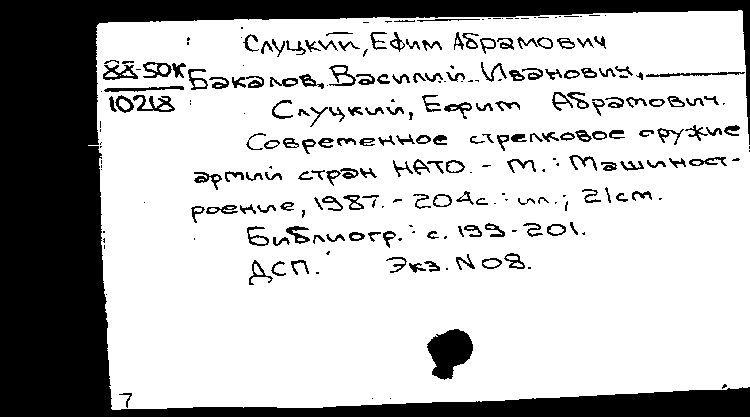 Слуцкий, Ефим Абрамович
88-50к Бакалов, Василий Иванович,
10218 Слуцкий, Ефим Абрамович.
Современное стрелковое оружие
армий стран НАТО. - М.: Машиност-
роение, 1987. - 204с.: ил.; 21см.
Библиогр.: с. 199-201.
ДСП. Экз. N 08.
7